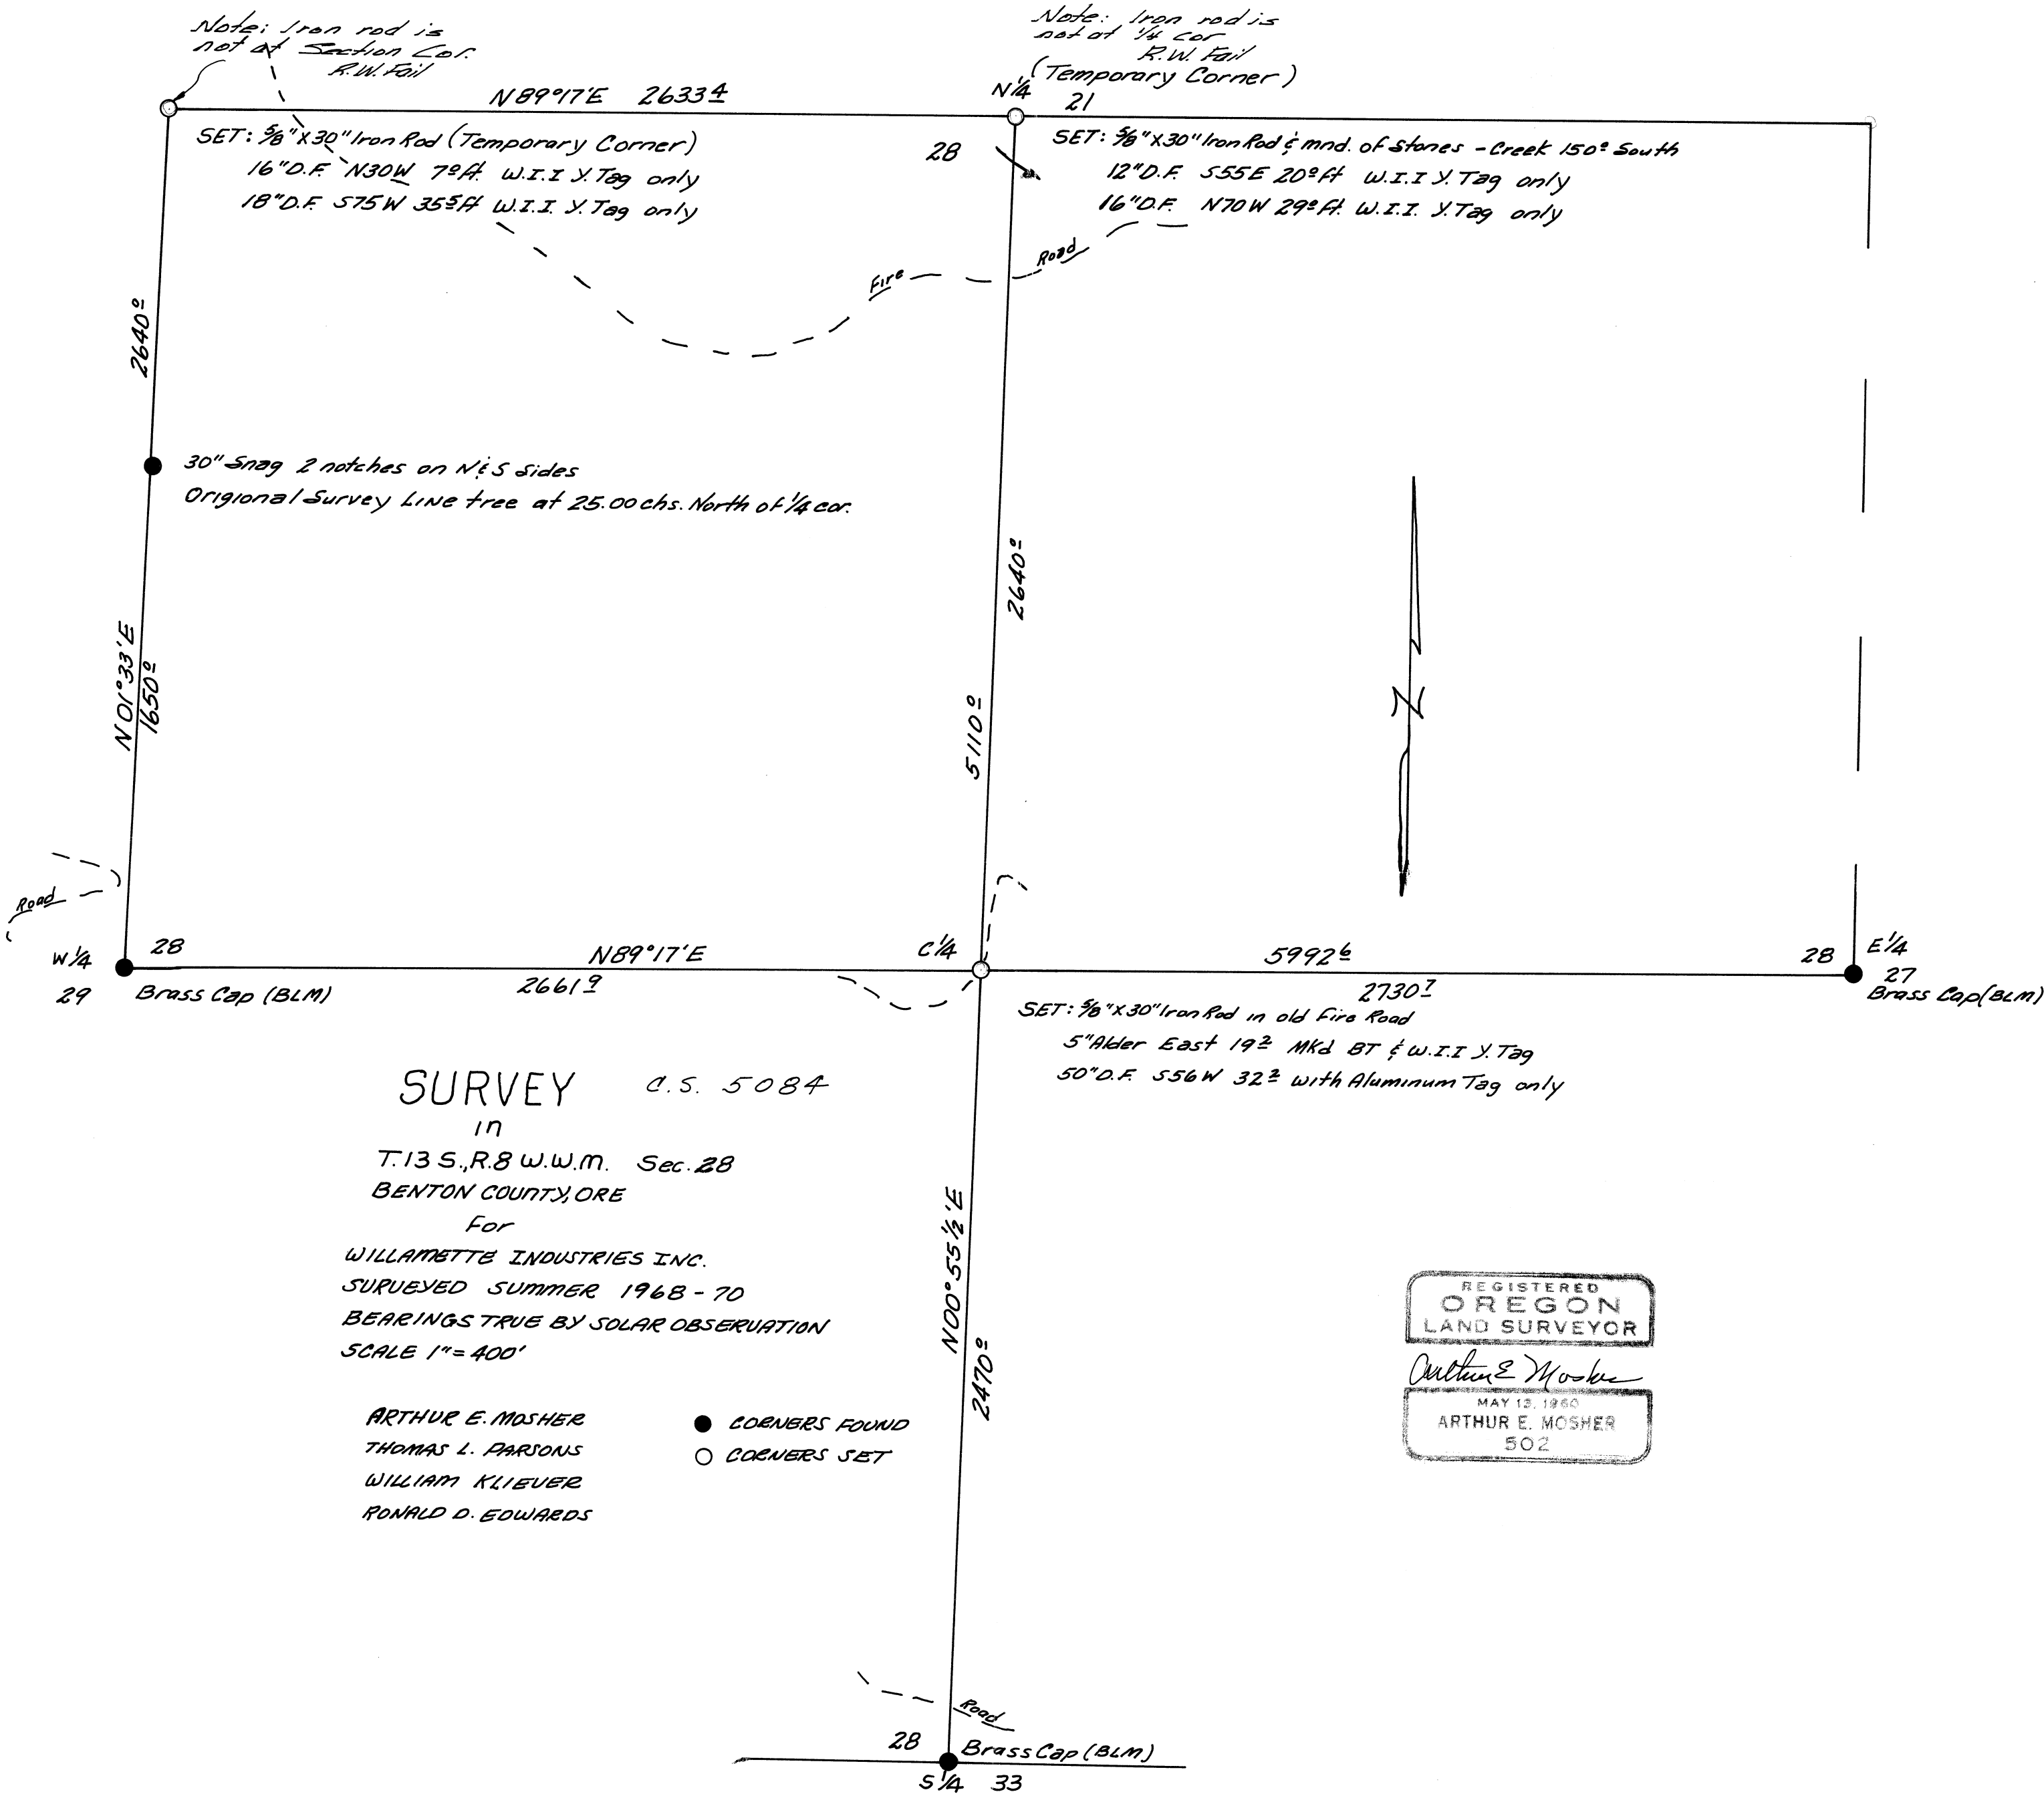 Note: Iron rod is
not at Section Cor.
R.W. Fail
Note: Iron rod is
not at 1/4 cor
R.W. Fail
(Temporary Corner)
N 89°17'E 2633 4
N 1/4
21
28
SET: 5/8" X 30" Iron Rod (Temporary Corner)
16" D.F. N30W 7 0 ft. W.I.I Y. Tag only
18" D.F. S75W 35 5 ft W.I.I. Y. Tag only
SET: 5/8" X 30" Iron Rod & mnd. of Stones - Creek 150 0 South
12" D.F. S55E 20 0 ft W.I.I Y. Tag only
16" D.F. N70W 29 0 ft. W.I.I. Y. Tag only
Fire Road
2640 0
30" Snag 2 notches on N & S sides
Origional Survey Line tree at 25.00 chs. North of 1/4 cor.
N 01°33'E
1650 0
2640 0
5110 0
N
Road
W 1/4
28
29
Brass Cap (BLM)
N89°17'E
2661 9
C 1/4
5992 6
2730 7
28
E 1/4
27
Brass Cap (BLM)
SET: 5/8" X 30" Iron Rod in old Fire Road
5" Alder East 19 2 Mkd BT & W.I.I Y. Tag
50" D.F. S56W 32 2 with Aluminum Tag only
SURVEY C.S. 5084
in
T.13 S., R.8 W.W.M. Sec. 28
BENTON COUNTY, ORE
For
WILLAMETTE INDUSTRIES INC.
SURVEYED SUMMER 1968-70
BEARINGS TRUE BY SOLAR OBSERVATION
SCALE 1"=400'
ARTHUR E. MOSHER
THOMAS L. PARSONS
WILLIAM KLIEVER
RONALD D. EDWARDS
CORNERS FOUND
CORNERS SET
N00°55 1/2'E
2470 0
REGISTERED
OREGON
LAND SURVEYOR
Arthur E Mosher
MAY 13, 1960
ARTHUR E. MOSHER
502
Road
28
Brass Cap (BLM)
S 1/4 33